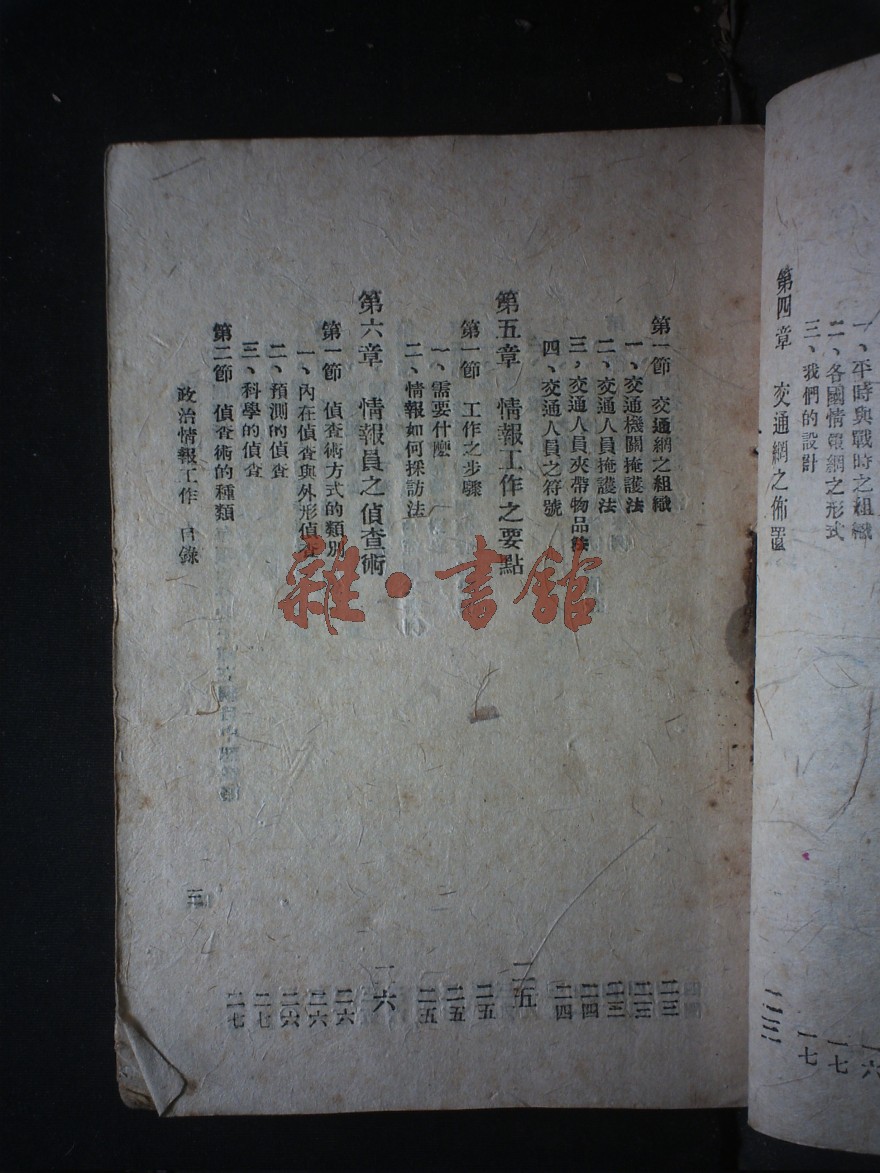 一、平時與戰時之組織 一六
二、各國情報網之形式 一七
三、我們的設計 一七
第四章 交通網之佈置 二三
第一節 交通網之組織 二三
一、交通機關掩護法 二三
二、交通人員掩護法 二三
三、交通人員夾帶物品法 二四
四、交通人員之符號 二四
第五章 情報工作之要點 二五
第一節 工作之步驟 二五
一、需要什麼 二五
二、情報如何採訪法 二五
第六章 情報員之偵查術 一六
第一節 偵查術方式的類別 二六
一、內在偵查與外形偵查 二六
二、預測的偵查 二六
三、科學的偵查 二七
第二節 偵查術的種類 二七
政治情報工作 目錄 三
雜·書館